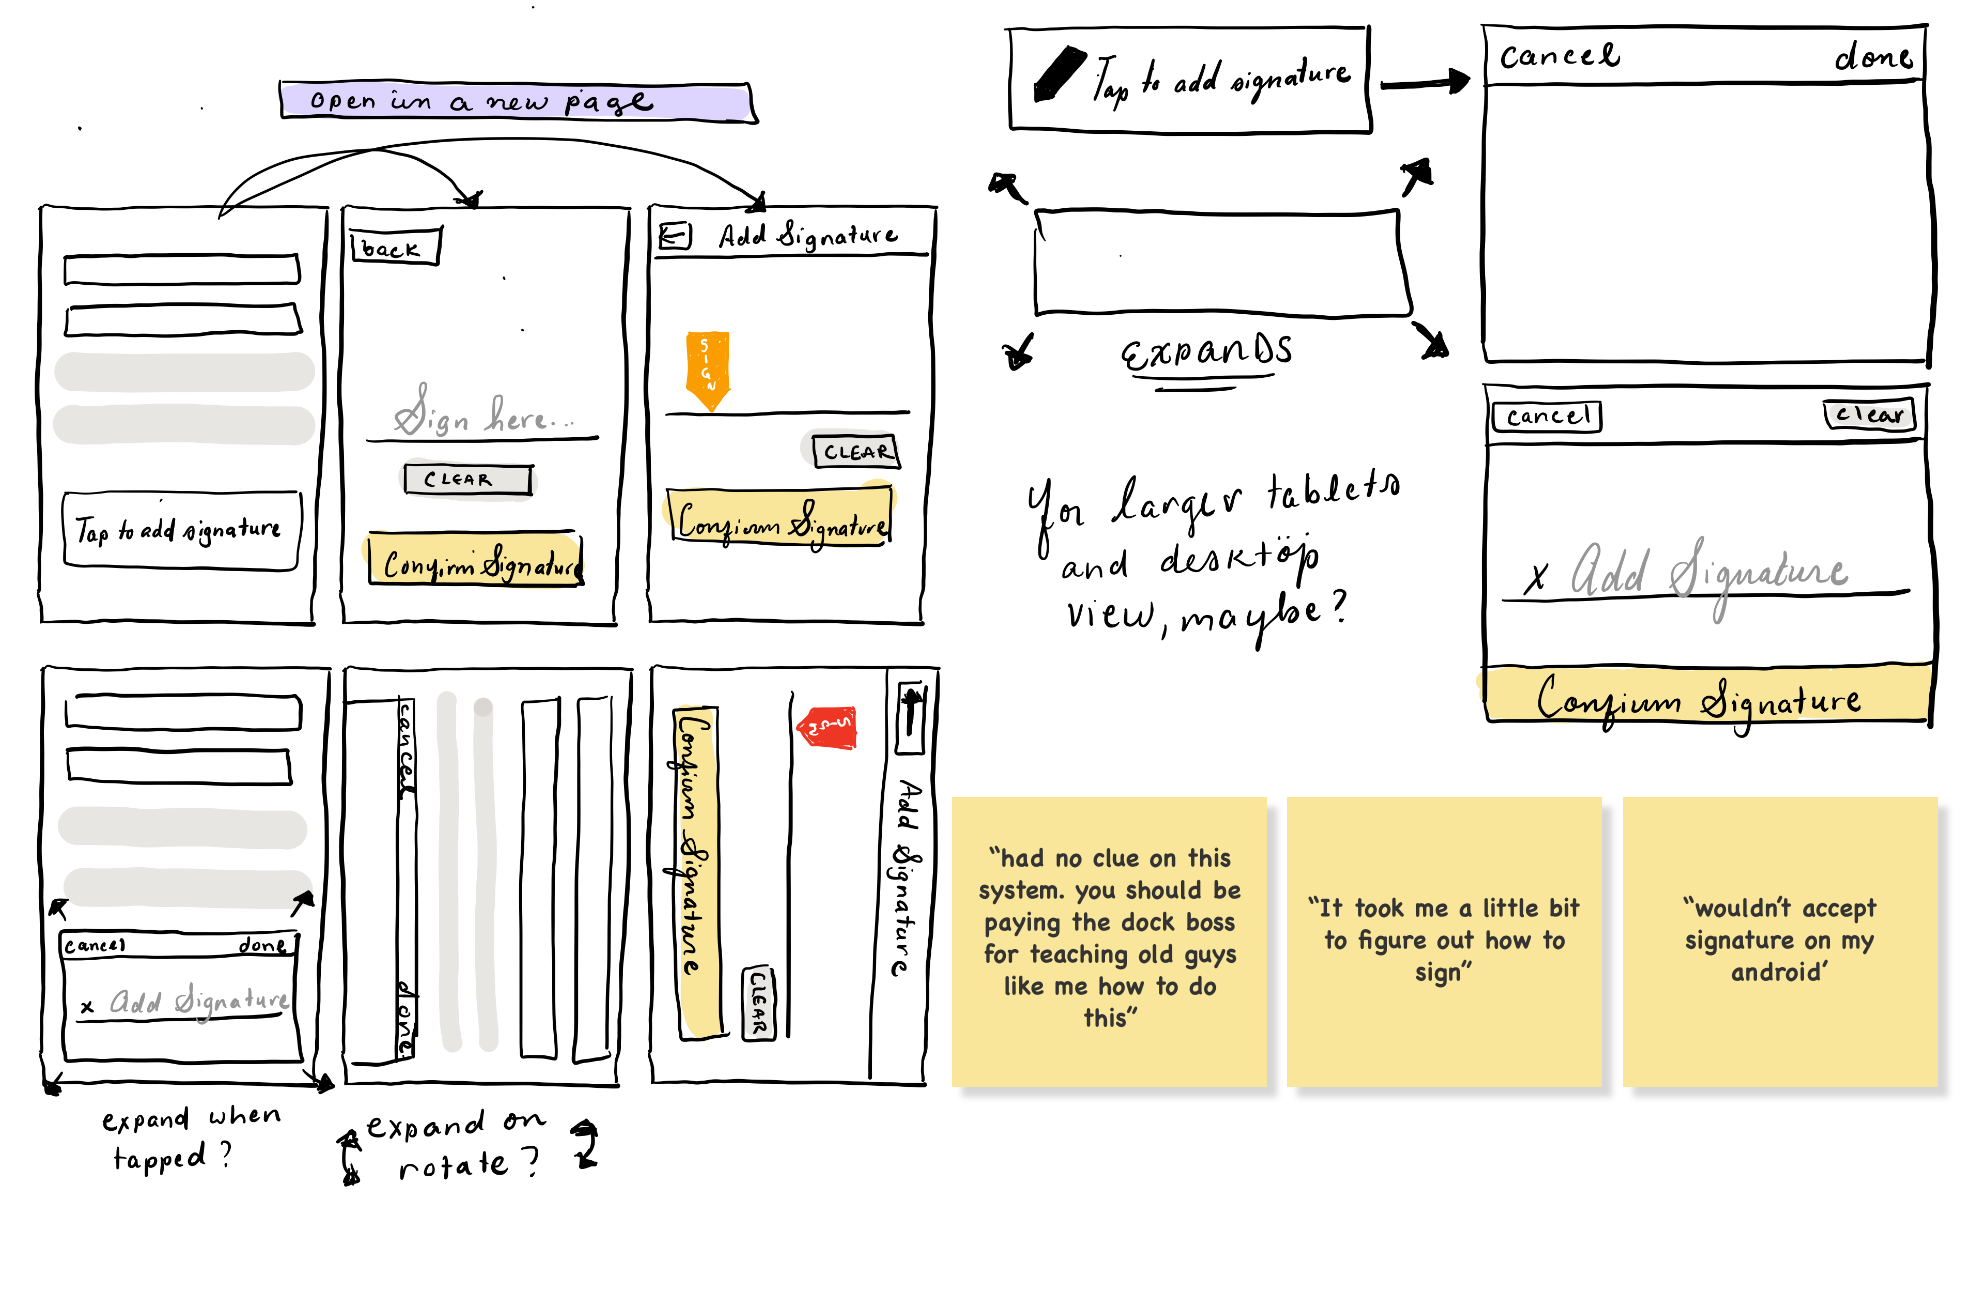 open in a new page
Tap to add signature
back
Sign here...
CLEAR
Confirm Signature
Add Signature
SIGN
CLEAR
Confirm Signature
cancel done
x Add Signature
expand when
tapped?
cancel
done
expand on
rotate?
Add Signature
SIGN
CLEAR
Confirm Signature
Tap to add signature
cancel done
EXPANDS
For larger tablets
and desktop
view, maybe?
cancel clear
x Add Signature
Confirm Signature
“had no clue on this
system. you should be
paying the dock boss
for teaching old guys
like me how to do
this”
“It took me a little bit
to figure out how to
sign”
“wouldn’t accept
signature on my
android’